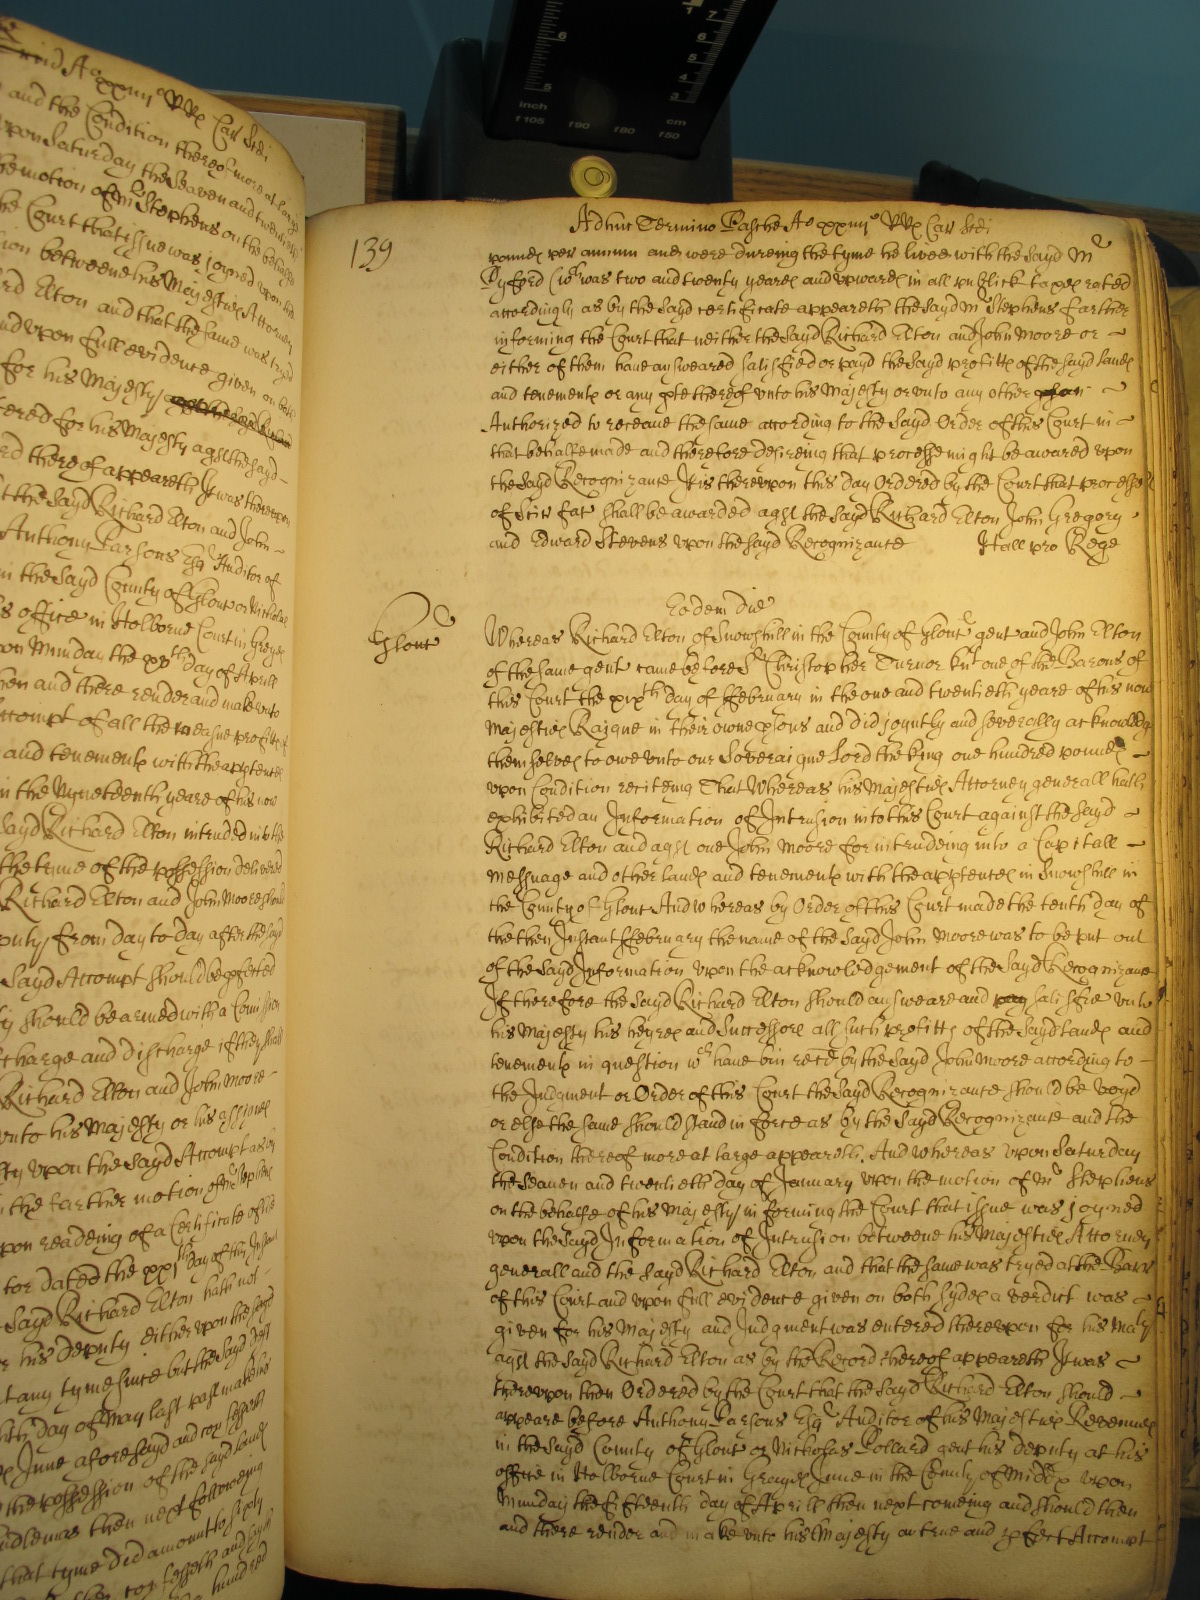 and the Condition thereof more at large
upon Saturday the Seaven and twentieth
the motion of Mr Stephens on the behalfe
the Court that issue was joyned upon the
ion betweene his Majesties Attorney
rd Elton and that the same was tryed
nd upon full evidence given on both
for his Majesty
ered for his Majesty agst the sayd
rd thereof appeareth It was thereupon
t the sayd Richard Elton and John
Anthony Parsons Esqr Auditor of
in the sayd County of Glouc or Nicholas
s office in Holborne Court in Grayes
on Munday the xvth day of Aprill
hen and there render and make unto
ttompt of all the measne profitts of
and tenements with the apptences
n the Nyneteenth yeare of his now
sayd Richard Elton intruded into the
the tyme of the possession delivered
Richard Elton and John Moore should
puty from day to day after the sayd
Sayd Attompt should be pfected
ty should be armed with a Comission
charge and discharge if they shall
Richard Elton and John Moore
unto his Majesty or his assignes
ty upon the sayd Attompt as by
the farther motion of Mr Stephens
pon readeing of a Certificate of the
tor dated the xxith day of this Instant
Sayd Richard Elton hath not
r his deputy either upon the sayd
t any tyme since but the sayd
th day of May last past make
June aforesayd and
the possession of the sayd lands
ndlemas then next following
that tyme did amount to sixty
hundred
139
Adhuc Termino Pasche Ao xxiiijo RRs Car Scdi
pounds per annum and were dureing the tyme he lived with the sayd Mr
Pyford (wch was two and twenty yeares and upwards in all publick taxes rated
accordingly as by the sayd certificate appeareth the sayd Mr Stephens farther
informing the Court that neither the sayd Richard Elton and John Moore or
either of them have answeared satisfied or payd the sayd profitts of the sayd lands
and tenements or any pte thereof unto his Majesty or unto any other
Authorized to receave the same according to the sayd Order of this Court in
that behalfe made and therefore desireing that processe might be awared upon
the sayd Recognizance It is thereupon this day Ordered by the Court that processe
of Scir fac shall be awarded agst the sayd Richard Elton John Gregory
and Edward Stevens upon the sayd Recognizance Hall pro Rege
Eodem die
Glouc
Whereas Richard Elton of Snowshill in the County of Gloucr gent and John Elton
of the same gent came before Sr Christopher Turnor knt one of the Barons of
this Court the xixth day of ffebruary in the one and twentieth yeare of his now
Majesties Raigne in their owne psons and did joyntly and severally acknowledge
themselves to owe unto our Soveraigne Lord the King one hundred pounds
upon Condition reciteing That Whereas his Majesties Attorney generall hath
exhibited an Information of Intrusion into this Court against the sayd
Richard Elton and agst one John Moore for intrudeing into a Capitall
messuage and other lands and tenements with the apptences in Snowshill in
the County of Glouc And whereas by Order of this Court made the tenth day of
the then Instant ffebruary the name of the sayd John Moore was to be put out
of the sayd Information upon the acknowledgement of the sayd Recognizance
If therefore the sayd Richard Elton should answeare and satisfie unto
his Majesty his heyres and Successors all such profitts of the sayd lands and
tenements in question wch have bin recd by the sayd John Moore according to
the Judgment or Order of this Court the sayd Recognizance should be voyd
or else the same should stand in force as by the sayd Recognizance and the
Condition thereof more at large appeareth. And whereas upon Saturday
the Seaven and twentieth day of January upon the motion of Mr Stephens
on the behalfe of his Majesty informing the Court that issue was joyned
upon the sayd Information of Intrusion betweene his Majesties Attorney
generall and the sayd Richard Elton and that the same was tryed at the Barr
of this Court and upon full evidence given on both sydes a verdict was
given for his Majesty and Judgment was entered thereupon for his Maty
agst the sayd Richard Elton as by the Record thereof appeareth It was
thereupon then Ordered by the Court that the sayd Richard Elton should
appeare before Anthony Parsons Esqr Auditor of his Majesties Revenues
in the sayd County of Glouc or Nicholas Pollard gent his deputy at his
office in Holborne Court in Grayes Inne in the County of Middx upon
Munday the fifteenth day of Aprill then next comeing and should then
and there render and make unto his Majesty a true and pfect Attompt